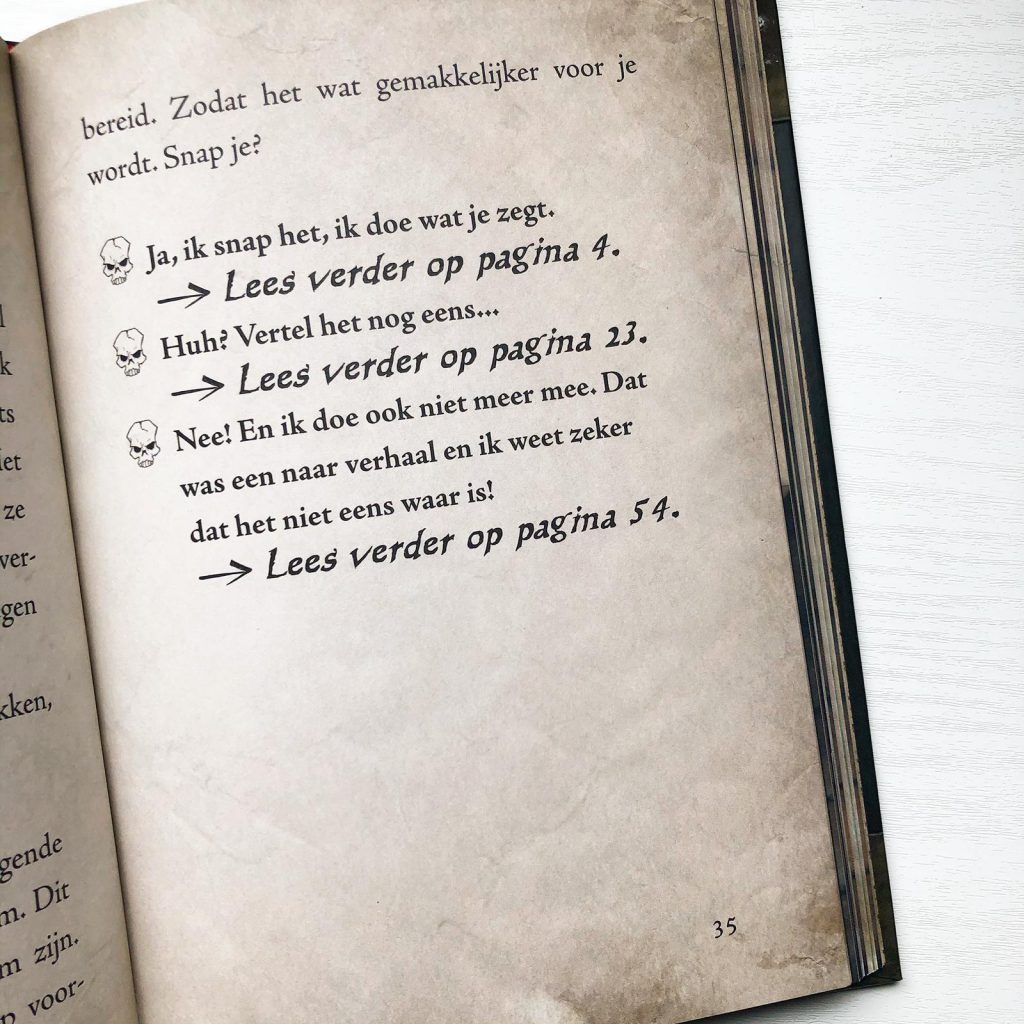 bereid. Zodat het wat gemakkelijker voor je
wordt. Snap je?
Ja, ik snap het, ik doe wat je zegt.
→ Lees verder op pagina 4.
Huh? Vertel het nog eens...
→ Lees verder op pagina 23.
Nee! En ik doe ook niet meer mee. Dat
was een naar verhaal en ik weet zeker
dat het niet eens waar is!
→ Lees verder op pagina 54.
35
ze
ver-
gen
kken,
gende
m. Dit
m zijn.
voor-